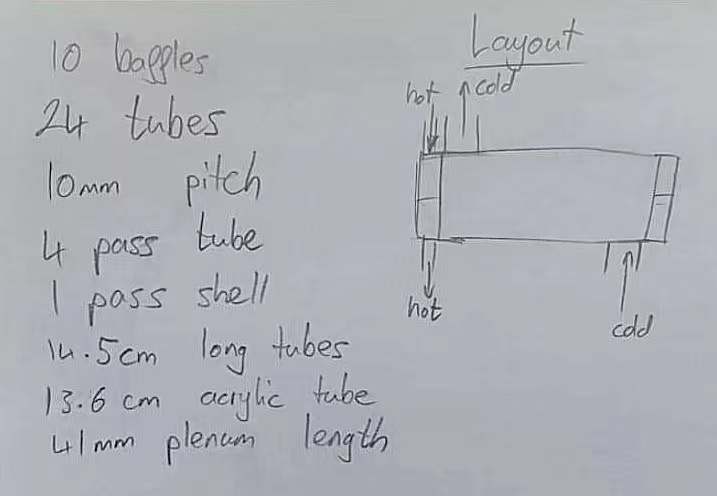 10 baffles
24 tubes
10mm pitch
4 pass tube
1 pass shell
14.5cm long tubes
13.6 cm acrylic tube
41mm plenum length
Layout
hot cold
hot
cold